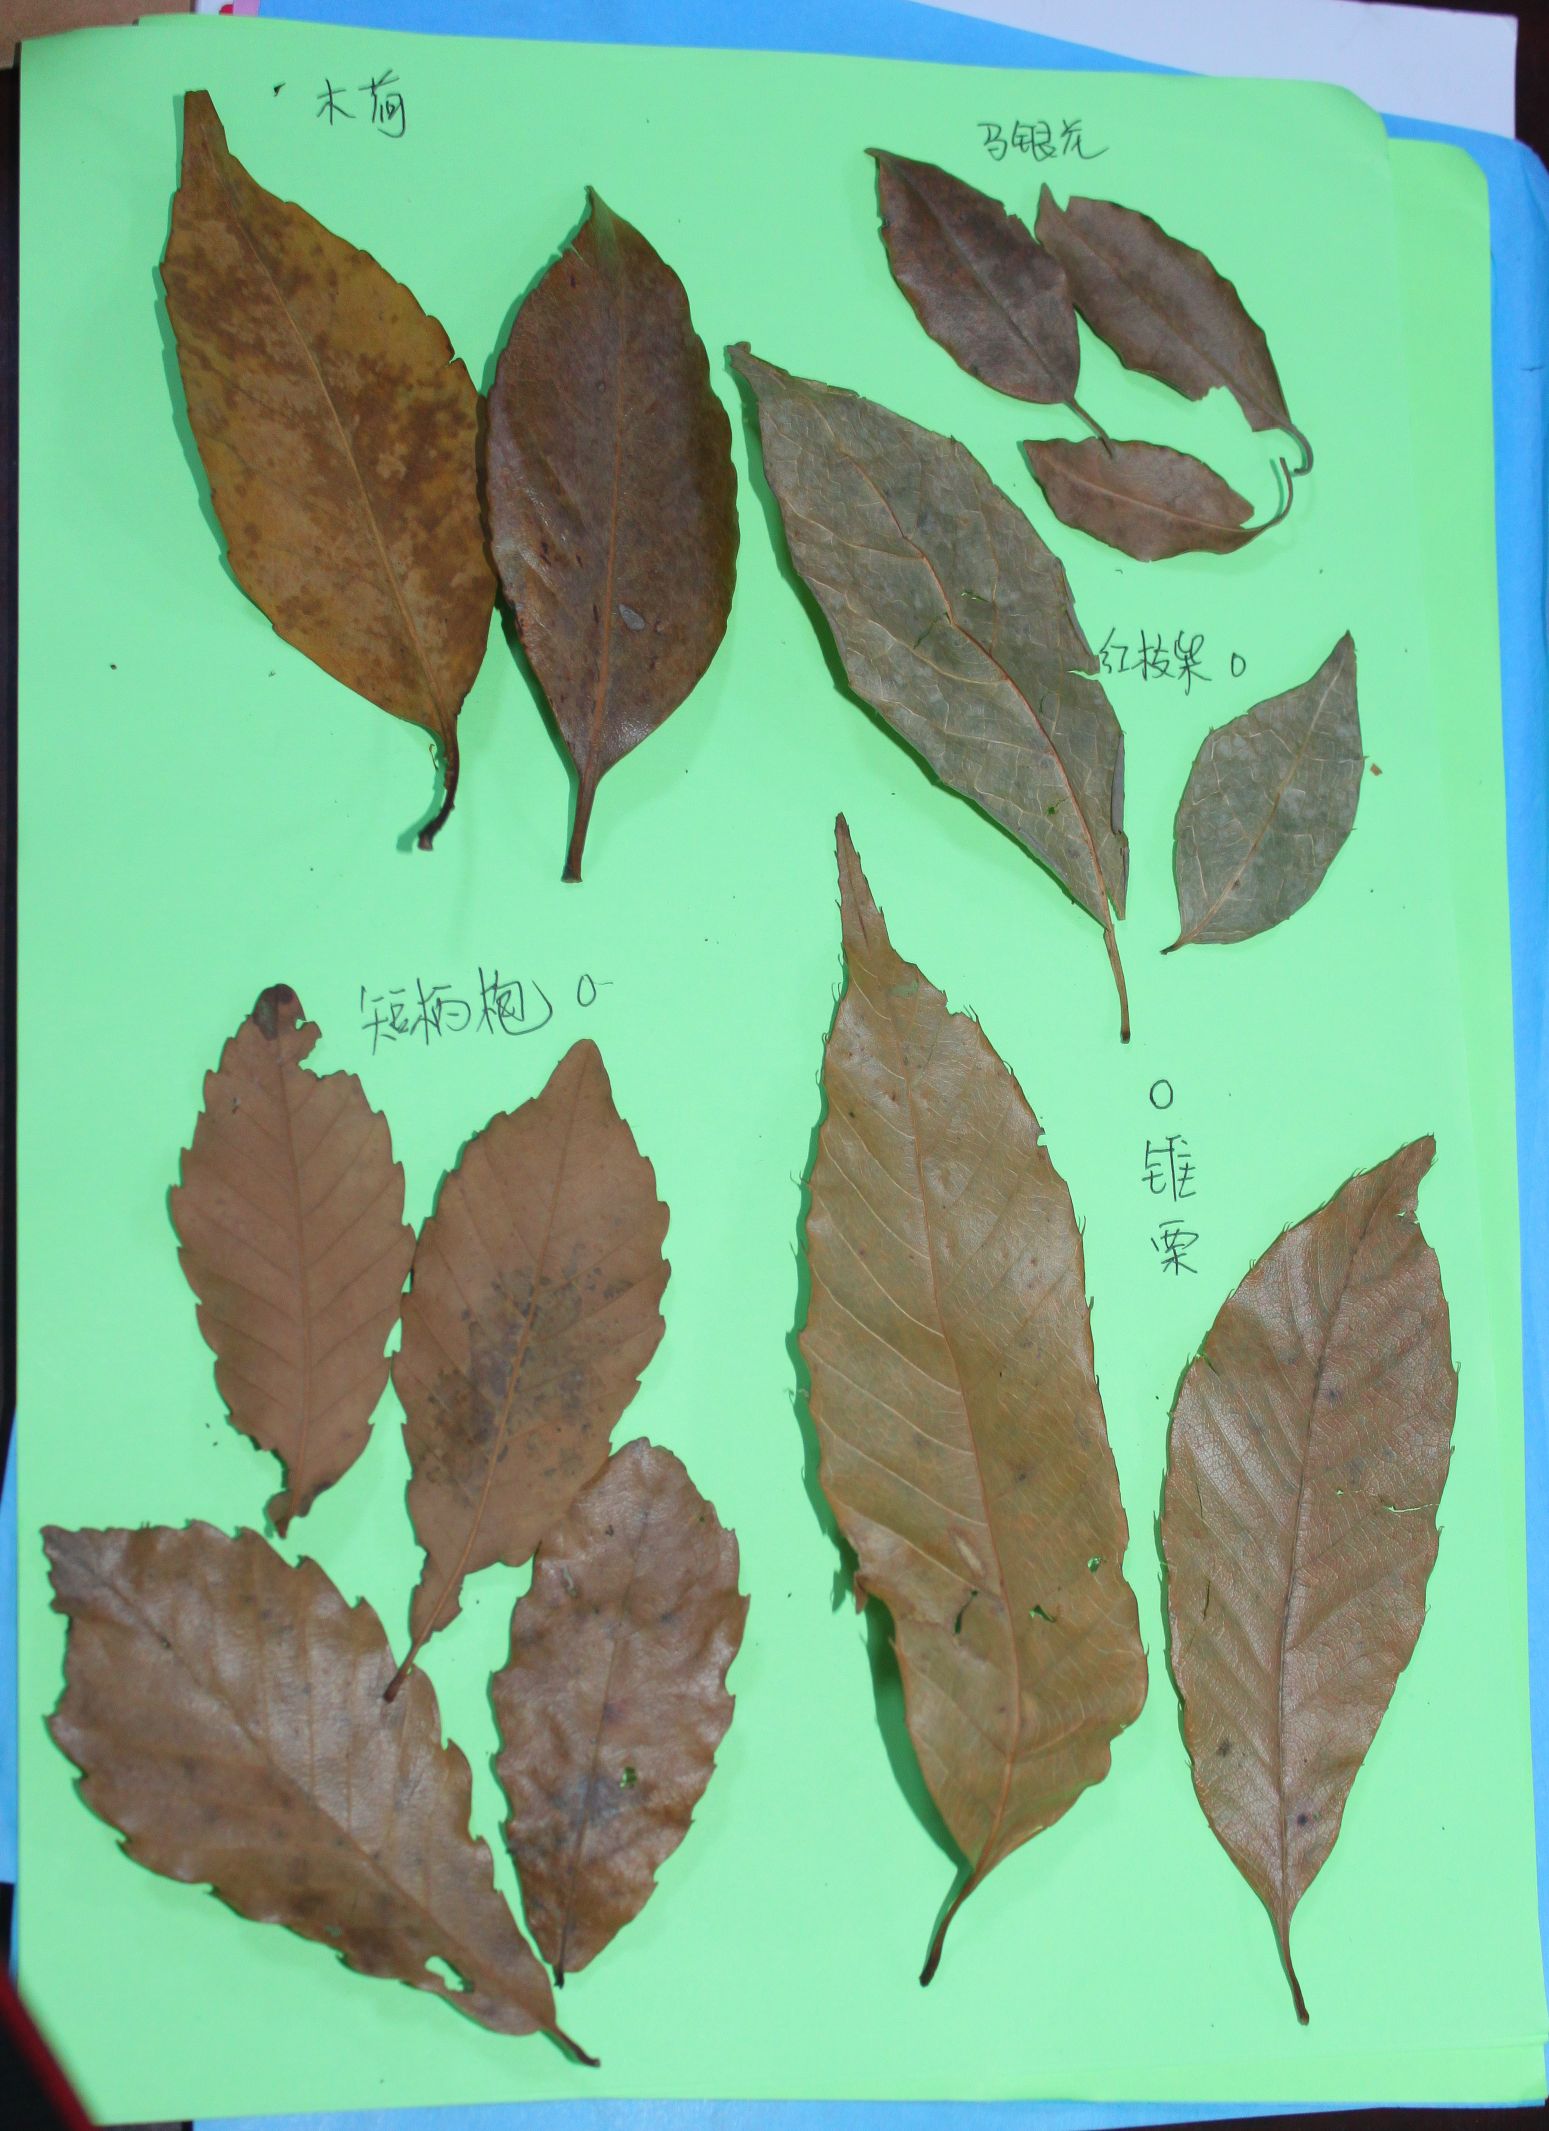 木荷
马银花
红枝柴 0
短柄枹 0
0
锥
栗